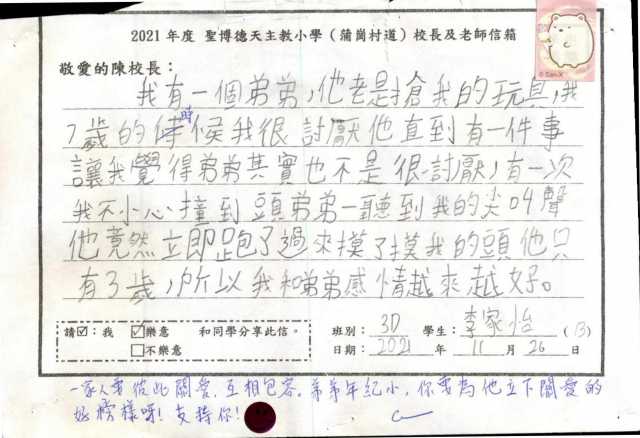 2021 年度 聖博德天主教小學（蒲崗村道）校長及老師信箱
敬愛的陳校長：
我有一個弟弟，他老是搶我的玩具，我
7歲的時候我很討厭他直到有一件事
讓我覺得弟弟其實也不是很討厭，有一次
我不小心撞到頭弟弟一聽到我的尖叫聲
他竟然立即跑了過來摸了摸我的頭他只
有3歲，所以我和弟弟感情越來越好。
請☑：我 ☑樂意 和同學分享此信。
□不樂意
班別：3D 學生：李家怡（13）
日期：2021 年 11 月 26 日
一家人要彼此關愛，互相包容。弟弟年紀小，你要為他立下關愛的
好榜樣呀！支持你！